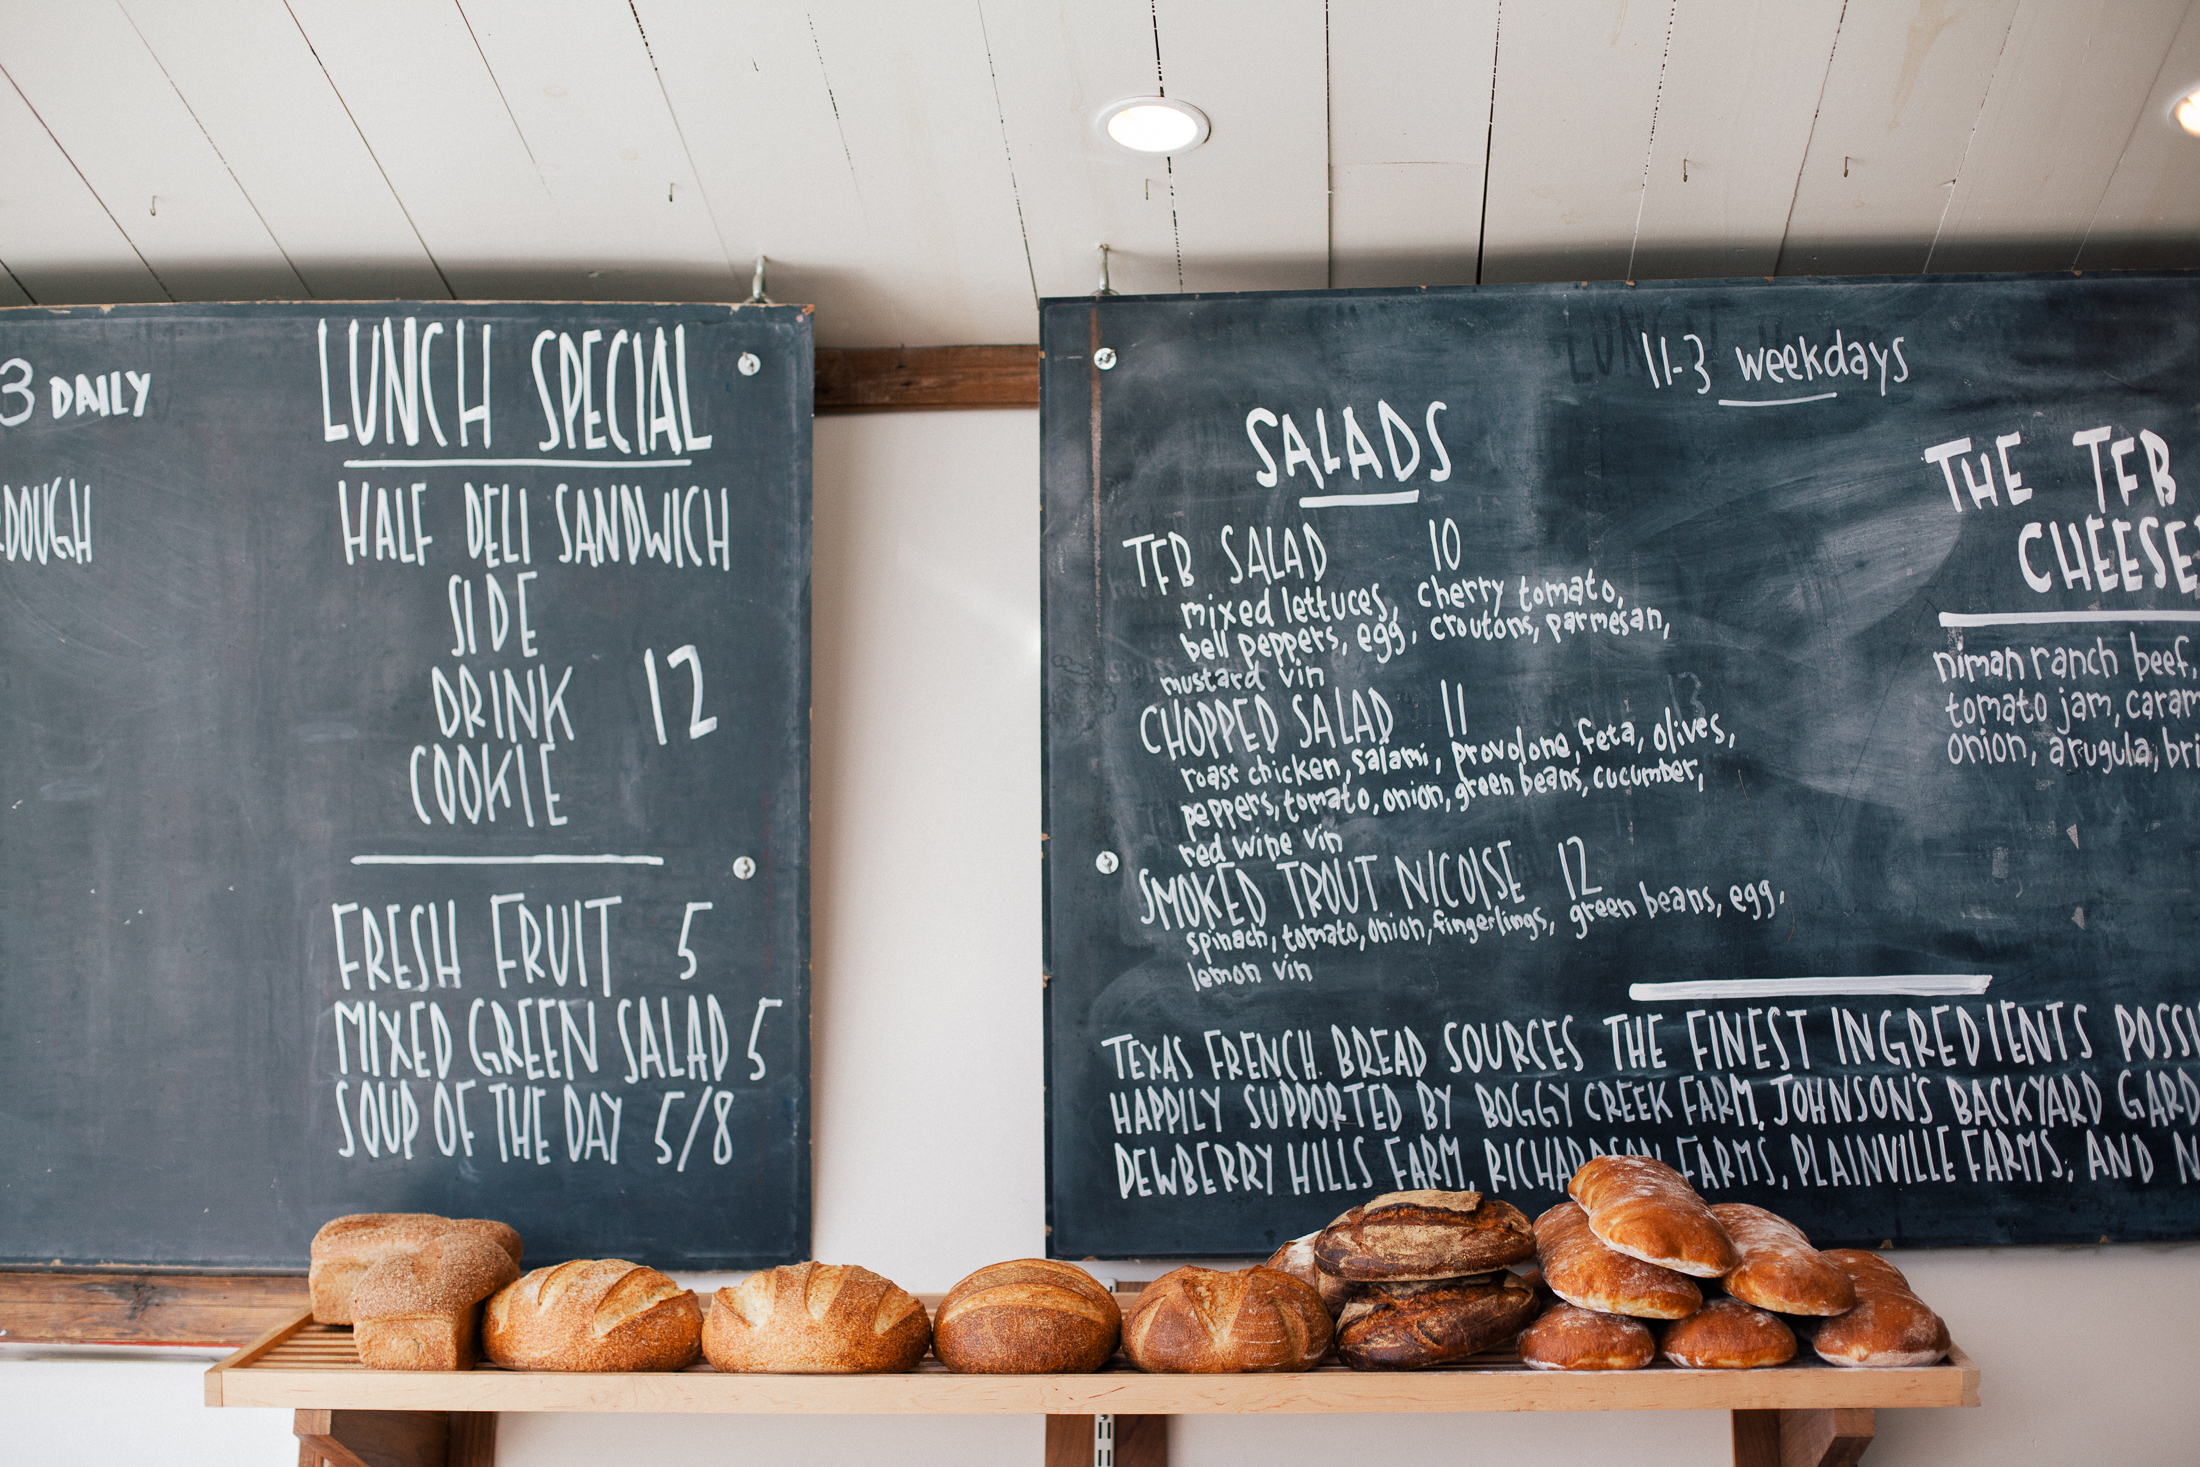 3 DAILY
DOUGH
LUNCH SPECIAL
HALF DELI SANDWICH
SIDE
DRINK 12
COOKIE
FRESH FRUIT 5
MIXED GREEN SALAD 5
SOUP OF THE DAY 5/8
11-3 weekdays
SALADS
TFB SALAD 10
mixed lettuces, cherry tomato,
bell peppers, egg, croutons, parmesan,
mustard vin
CHOPPED SALAD 11
roast chicken, salami, provolone, feta, olives,
peppers, tomato, onion, green beans, cucumber,
red wine vin
SMOKED TROUT NICOISE 12
spinach, tomato, onion, fingerlings, green beans, egg,
lemon vin
THE TFB
CHEESE
niman ranch beef,
tomato jam, caram
onion, arugula, bri
TEXAS FRENCH BREAD SOURCES THE FINEST INGREDIENTS POSSI
HAPPILY SUPPORTED BY BOGGY CREEK FARM, JOHNSON'S BACKYARD GARD
DEWBERRY HILLS FARM, RICHARDSON FARMS, PLAINVILLE FARMS, AND N